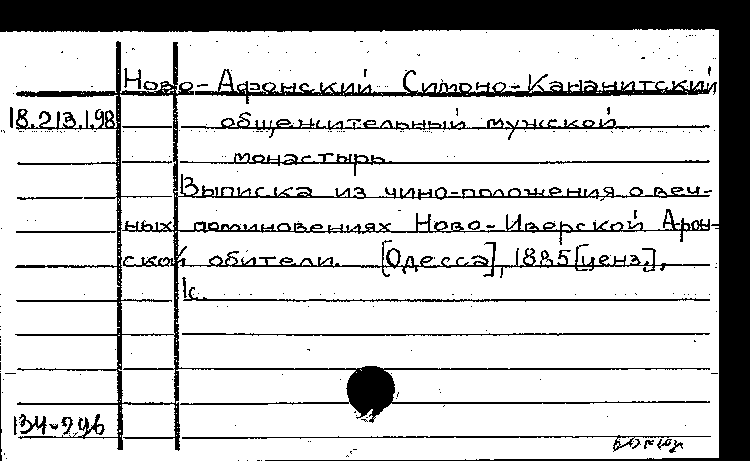 Ново-Афонский Симоно-Кананитский
18.213.1.98 общежительный мужской
монастырь.
Выписка из чино-положения о веч-
ных поминовениях Ново-Иверской Афон-
ской обители. [Одесса], 1885 [ценз.],
1с.
134-296